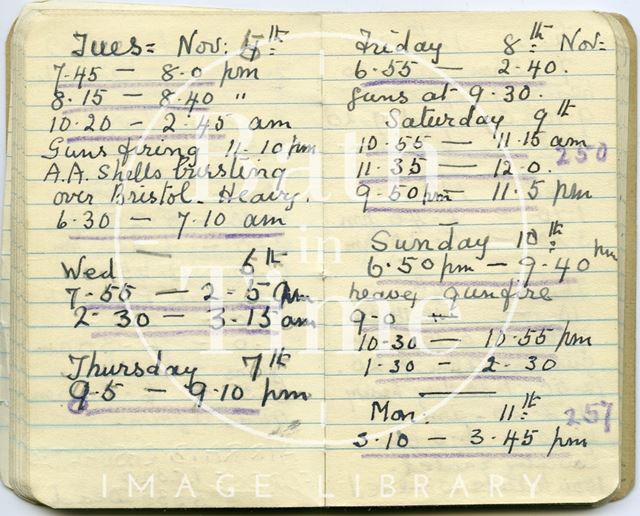 Tues= Nov: 5th
7.45 — 8.0 pm
8.15 — 8.40 "
10.20 — 2.45 am
Guns firing 11.10 pm
A.A. Shells bursting
over Bristol. Heavy.
6.30 — 7.10 am
Wed 6th
7.55 — 2.50 am
2.30 — 3.15 am
Thursday 7th
9.5 — 9.10 pm
8
Friday 8th Nov=
6.55 — 2.40.
Guns at 9.30.
Saturday 9th
10.55 — 11.15 am
250
11.35 — 12.0.
9.50 pm — 11.5 pm
Sunday 10th
6.50 pm — 9.40 pm
heavy gunfire
9.0
10.30 — 10.55 pm
1.30 — 2.30
Mon. 11th
257
3.10 — 3.45 pm
Bath
in
Time
IMAGE LIBRARY